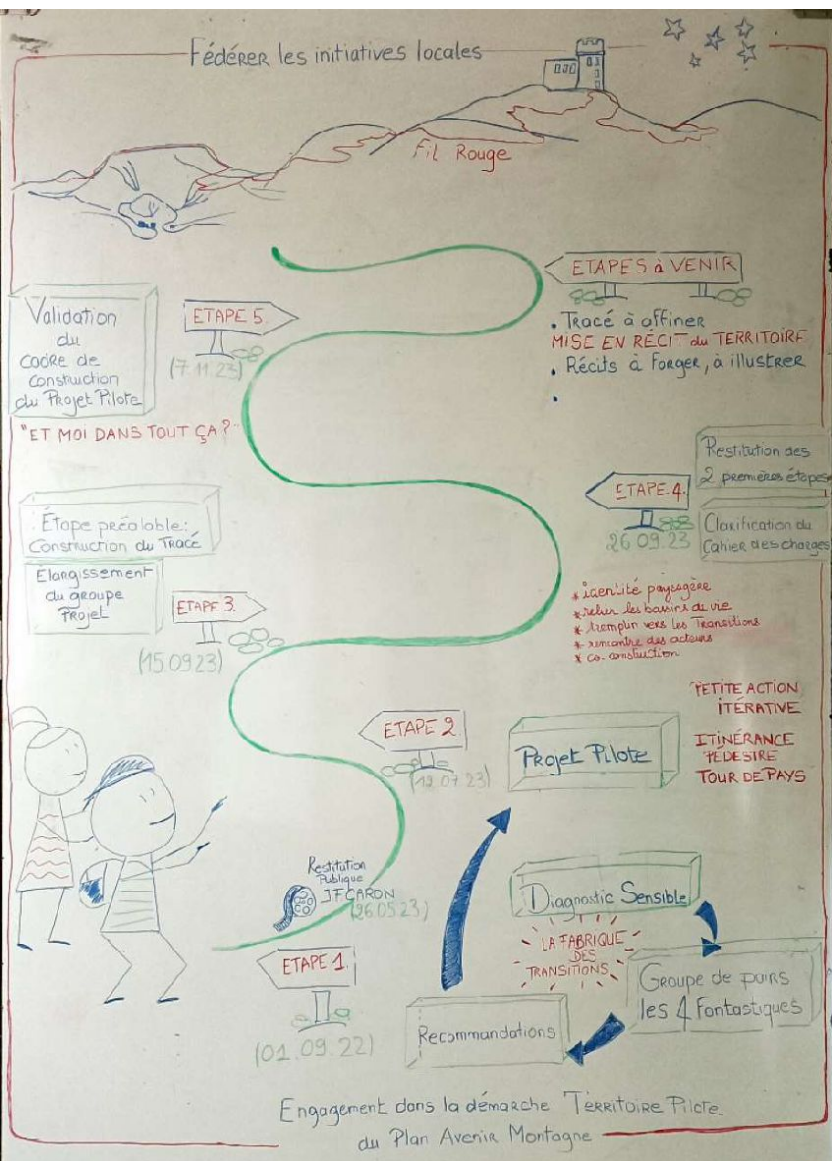 Fédérer les initiatives locales
Fil Rouge
ETAPES à VENIR
. Tracé à affiner
MISE EN RÉCIT du TERRITOIRE
. Récits à Forger, à illustrer
.
Validation
du
CADRE de
Construction
du Projet Pilote
ETAPE 5.
(7.11.23)
"ET MOI DANS TOUT ÇA?"
Restitution des
2 premières étapes
ETAPE.4.
26 09.23
Clarification du
Cahier des charges
Étape préalable:
Construction du Tracé
Elargissement
du groupe
Projet
ETAPE 3.
(15.09 23)
* identité paysagère
* relier les bassins de vie
* tremplin vers les Transitions
* rencontre des acteurs
* co-construction
PETITE ACTION
ITÉRATIVE
ITINÉRANCE
PÉDESTRE
TOUR DE PAYS
ETAPE 2.
(12.07 23)
Projet Pilote
Restitution
Publique
JF CARON
(26.05.23)
Diagnostic Sensible
LA FABRIQUE
DES
TRANSITIONS
Groupe de pairs
les 4 Fantastiques
Recommandations
ETAPE 1.
(01.09.22)
Engagement dans la démarche Territoire Pilote
du Plan Avenir Montagne